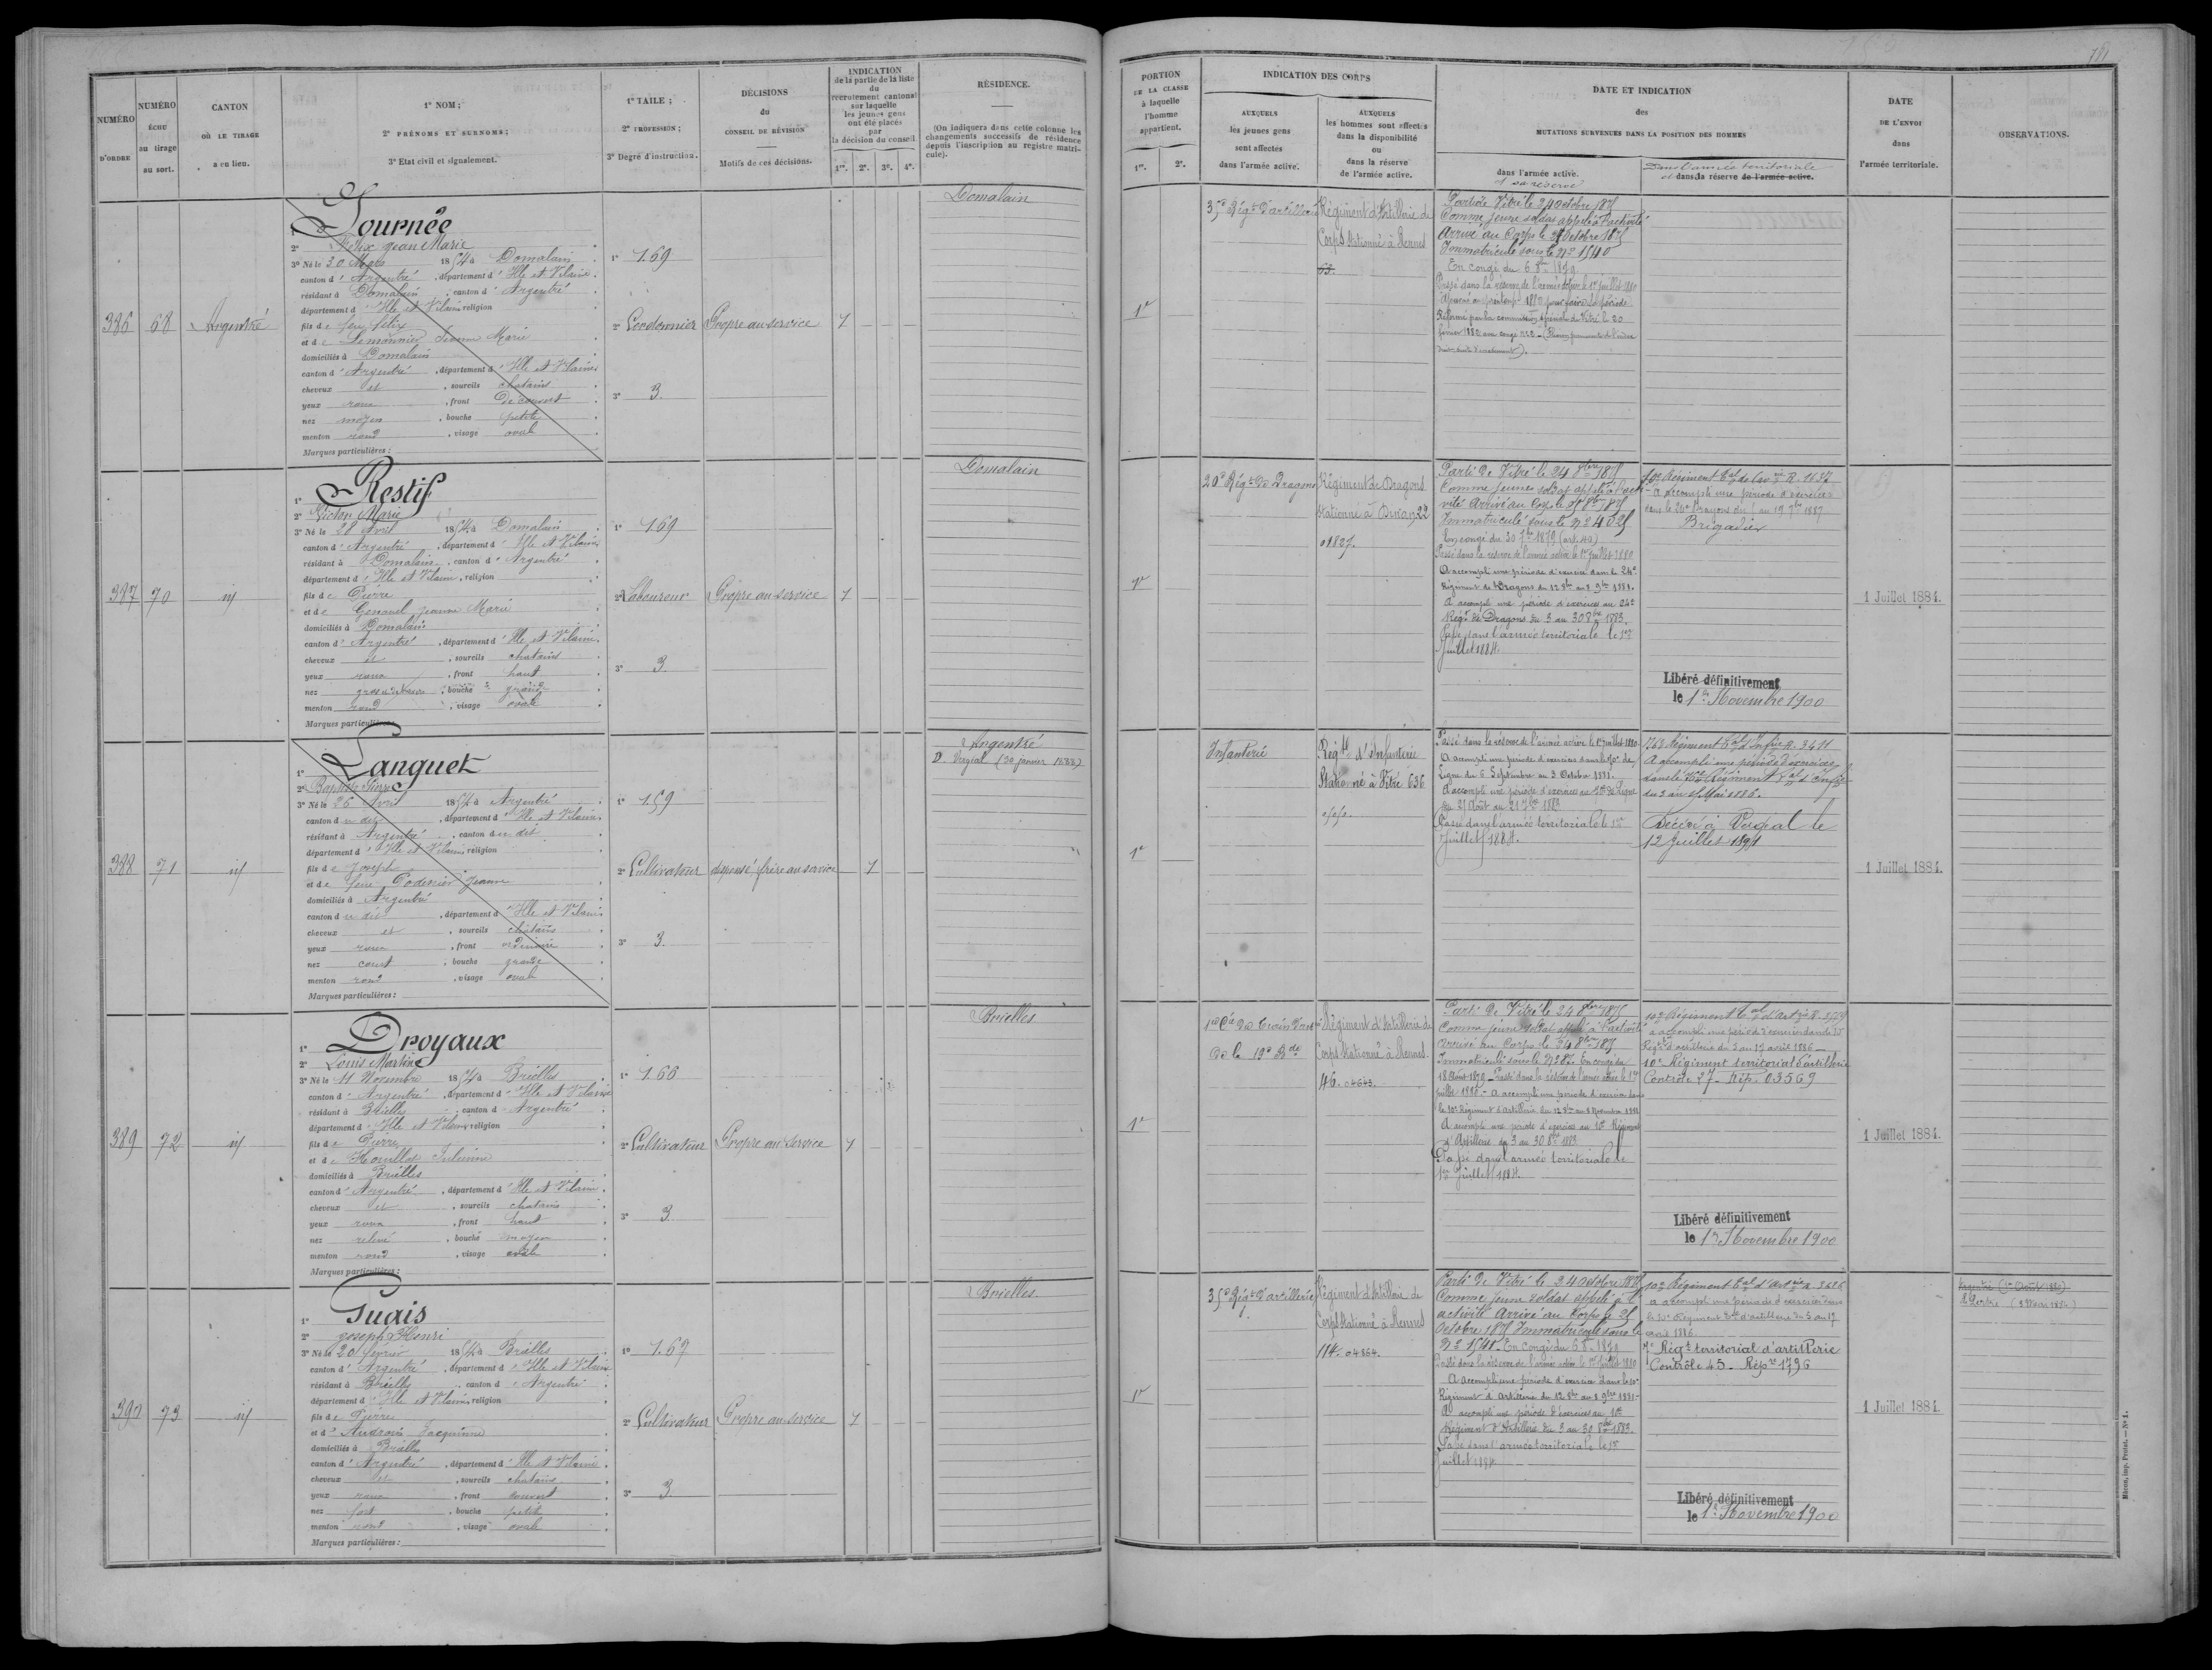 NUMÉRO
D'ORDRE
NUMÉRO
ÉCHU
au tirage
au sort.
CANTON
OÙ LE TIRAGE
a eu lieu.
1° NOM ;
2° PRÉNOMS ET SURNOMS ;
3° Etat civil et signalement.
1° TAILE ;
2° PROFESSION ;
3° Degré d'instruction.
DÉCISIONS
du
CONSEIL DE RÉVISION
Motifs de ces décisions.
INDICATION
de la partie de la liste
du
recrutement cantonal
sur laquelle
les jeunes gens
ont été placés
par
la décision du conseil
1re. 2e. 3e. 4e.
RÉSIDENCE.
(On indiquera dans cette colonne les
changements successifs de résidence
depuis l'inscription au registre matri-
cule).
PORTION
DE LA CLASSE
à laquelle
l'homme
appartient.
1re. 2e.
INDICATION DES CORPS
AUXQUELS
les jeunes gens
sont affectés
dans l'armée active.
AUXQUELS
les hommes sont affectés
dans la disponibilité
ou
dans la réserve
de l'armée active.
DATE ET INDICATION
des
MUTATIONS SURVENUES DANS LA POSITION DES HOMMES
dans l'armée active.
et sa réserve
Dans l'armée territoriale
et dans la réserve de l'armée active.
DATE
DE L'ENVOI
dans
l'armée territoriale.
OBSERVATIONS.
386 68 Argentré
1° Journée
2° Félix Jean Marie
3° Né le 30 Mars 1854 à Domalain
canton d'Argentré, département d'Ille et Vilaine
résidant à Domalain, canton d'Argentré
département d'Ille et Vilaine religion
fils de feu félix
et de Lemonnier Jeanne Marie
domiciliés à Domalain
canton d'Argentré, département d'Ille et Vilaine
cheveux et, sourcils chatains
yeux roux, front découvert
nez moyen, bouche petite
menton rond, visage ovale
Marques particulières :
1° 1.69
2° Cordonnier
3° 3.
Propre au service
1
Domalain
1re
35e Régt d'artillerie
Régiment d'Artillerie de
Corps stationné à Rennes
63.
Parti de Vitré le 24 octobre 1875
Comme jeune soldat appelé à l'activité
Arrivé au Corps le 25 Octobre 1875
Immatriculé sous le No 1540
En congé du 6 8bre 1879.
Passé dans la réserve de l'armée active le 1er juillet 1880
Ajourné au printemps 1882 pour faire sa période
Réformé par la commission spéciale de Vitré le 20
février 1882
387 70 id
1° Restif
2° Victor Marie
3° Né le 28 Avril 1854 à Domalain
canton d'Argentré, département d'Ille et Vilaine
résidant à Domalain, canton d'Argentré
département d'Ille et Vilaine, religion
fils de Pierre
et de Genouel Jeanne Marie
domiciliés à Domalain
canton d'Argentré, département d'Ille et Vilaine
cheveux et, sourcils chatains
yeux roux, front haut
nez, bouche grande
menton rond, visage ovale
Marques particulières :
1° 1.69
2° Laboureur
3° 3.
Propre au service
1
Domalain
1re
20e Régt de Dragons
Régiment de Dragons
stationné à Dinan, 22
01827.
Parti de Vitré le 24 8bre 1875
Comme jeune soldat appelé à l'acti-
vité Arrivé au Corps le 25 8bre 1875
Immatriculé sous le No 4025
En congé du 30 7bre 1879 (art. 40)
Passé dans la réserve de l'armée active le 1er juillet 1880
A accompli une période d'exercice dans le 24e
Régiment de Dragons du 12 8bre au 8 9bre 1881.
A accompli une période d'exercices au 24e
Régt de Dragons du 3 au 30 8bre 1883.
Passé dans l'armée territoriale le 1er
Juillet 1884.
10e Régiment Tal de Cavie R. 1637
A accompli une période d'exercices
dans le 24e Dragons du au 19 7bre 1887
Brigadier
Libéré définitivement
le 1er Novembre 1900
1 Juillet 1884.
388 71 id
1° Lanquet
2° Baptiste Pierre
3° Né le 26 Avril 1854 à Argentré
canton du dit, département d'Ille et Vilaine
résidant à Argentré, canton du dit
département d'Ille et Vilaine religion
fils de Joseph
et de feue Jeanne
domiciliés à Argentré
canton du dit, département d'Ille et Vilaine
cheveux et, sourcils chatains
yeux roux, front ordinaire
nez court, bouche grande
menton rond, visage ovale
Marques particulières :
1° 1.59
2° Cultivateur
3° 3.
dispensé, frère au service
1
Argentré
D. Vergeal (30 janvier 1888)
1re
Infanterie
Régt d'Infanterie
Stationné à Vitré 636
Passé dans la réserve de l'armée active le 1er juillet 1880
A accompli une période d'exercices dans le 70e de
Ligne du 6 Septembre au 3 Octobre 1881.
A accompli une période d'exercices au 70e de Ligne
du 25 Août au 21 7bre 1883
Passé dans l'armée territoriale le 1er
Juillet 1884.
76e Régiment Tal d'Infie R. 3411
A accompli une période d'exercices
dans le 76e Régiment Tal d'Infie
du 3 au 15 Mai 1886.
Décédé à Vergeal le
12 Juillet 1891
1 Juillet 1884.
389 72 id
1° Droyaux
2° Louis Martin
3° Né le 11 Novembre 1854 à Brielles
canton d'Argentré, département d'Ille et Vilaine
résidant à Brielles, canton d'Argentré
département d'Ille et Vilaine religion
fils de Pierre
et de Julienne
domiciliés à Brielles
canton d'Argentré, département d'Ille et Vilaine
cheveux et, sourcils chatains
yeux roux, front haut
nez relevé, bouche moyen
menton rond, visage ovale
Marques particulières :
1° 1.66
2° Cultivateur
3° 3
Propre au service
1
Brielles
1re
1re Cie du Train d'art
de la 19e Bde
Régiment d'Artillerie de
Corps stationné à Rennes.
46. 04643.
Parti de Vitré le 24 8bre 1875
Comme jeune soldat appelé à l'activité
Arrivé au Corps le 24 8bre 1875
Immatriculé sous le No 87. En congé du
18 Août 1879. Passé dans la réserve de l'armée active le 1er
juillet 1880. A accompli une période d'exercice dans
le 10e Régiment d'Artillerie du 12 8bre au 8 Novembre 1881
A accompli une période d'exercices au 10e Régiment
d'Artillerie du 3 au 30 8bre 1883
Passé dans l'armée territoriale le
1er Juillet 1884.
10e Régiment Tal d'Artie
a accompli une période d'exercices dans le
Régt d'artillerie du 3 au 17 avril 1886
10e Régiment territorial d'artillerie
Contrôle 27 - Rép. 03569
Libéré définitivement
le 1er Novembre 1900
1 Juillet 1884.
390 73 id
1° Guais
2° Joseph Henri
3° Né le 20 février 1854 à Brielles
canton d'Argentré, département d'Ille et Vilaine
résidant à Brielles, canton d'Argentré
département d'Ille et Vilaine religion
fils de Pierre
et d'Androuin Jacquinne
domiciliés à Brielles
canton d'Argentré, département d'Ille et Vilaine
cheveux et, sourcils chatains
yeux roux, front couvert
nez fort, bouche petite
menton rond, visage ovale
Marques particulières :
1° 1.67
2° Cultivateur
3° 3
Propre au service
1
Brielles
1re
35e Régt d'artillerie
Régiment d'Artillerie de
Corps stationné à Rennes
114. 04864.
Parti de Vitré le 24 octobre 1875
Comme jeune soldat appelé à l'
activité Arrivé au Corps le 25
Octobre 1875 Immatriculé sous le
No 1541. En congé du 6 8bre 1879
Passé dans la réserve de l'armée active le 1er juillet 1880
A accompli une période d'exercice dans le 10e
Régiment d'Artillerie du 12 8bre au 8 9bre 1881
A accompli une période d'exercices au 10e
Régiment d'Artillerie du 3 au 30 8bre 1883.
Passé dans l'armée territoriale le 1er
Juillet 1884.
10e Régiment Tal d'Artie R. 3686
a accompli une période d'exercices dans
le 10e Régiment Tal d'artillerie du 3 au 17
avril 1886.
7e Régt territorial d'artillerie
Contrôle 45 - Rép re 1796
Libéré définitivement
le 1er Novembre 1900
1 Juillet 1884.
Argentré (1er Août 1880)
Le Pertre (3 Mai 1884)
Mâcon, imp. Protat. — N° 1.